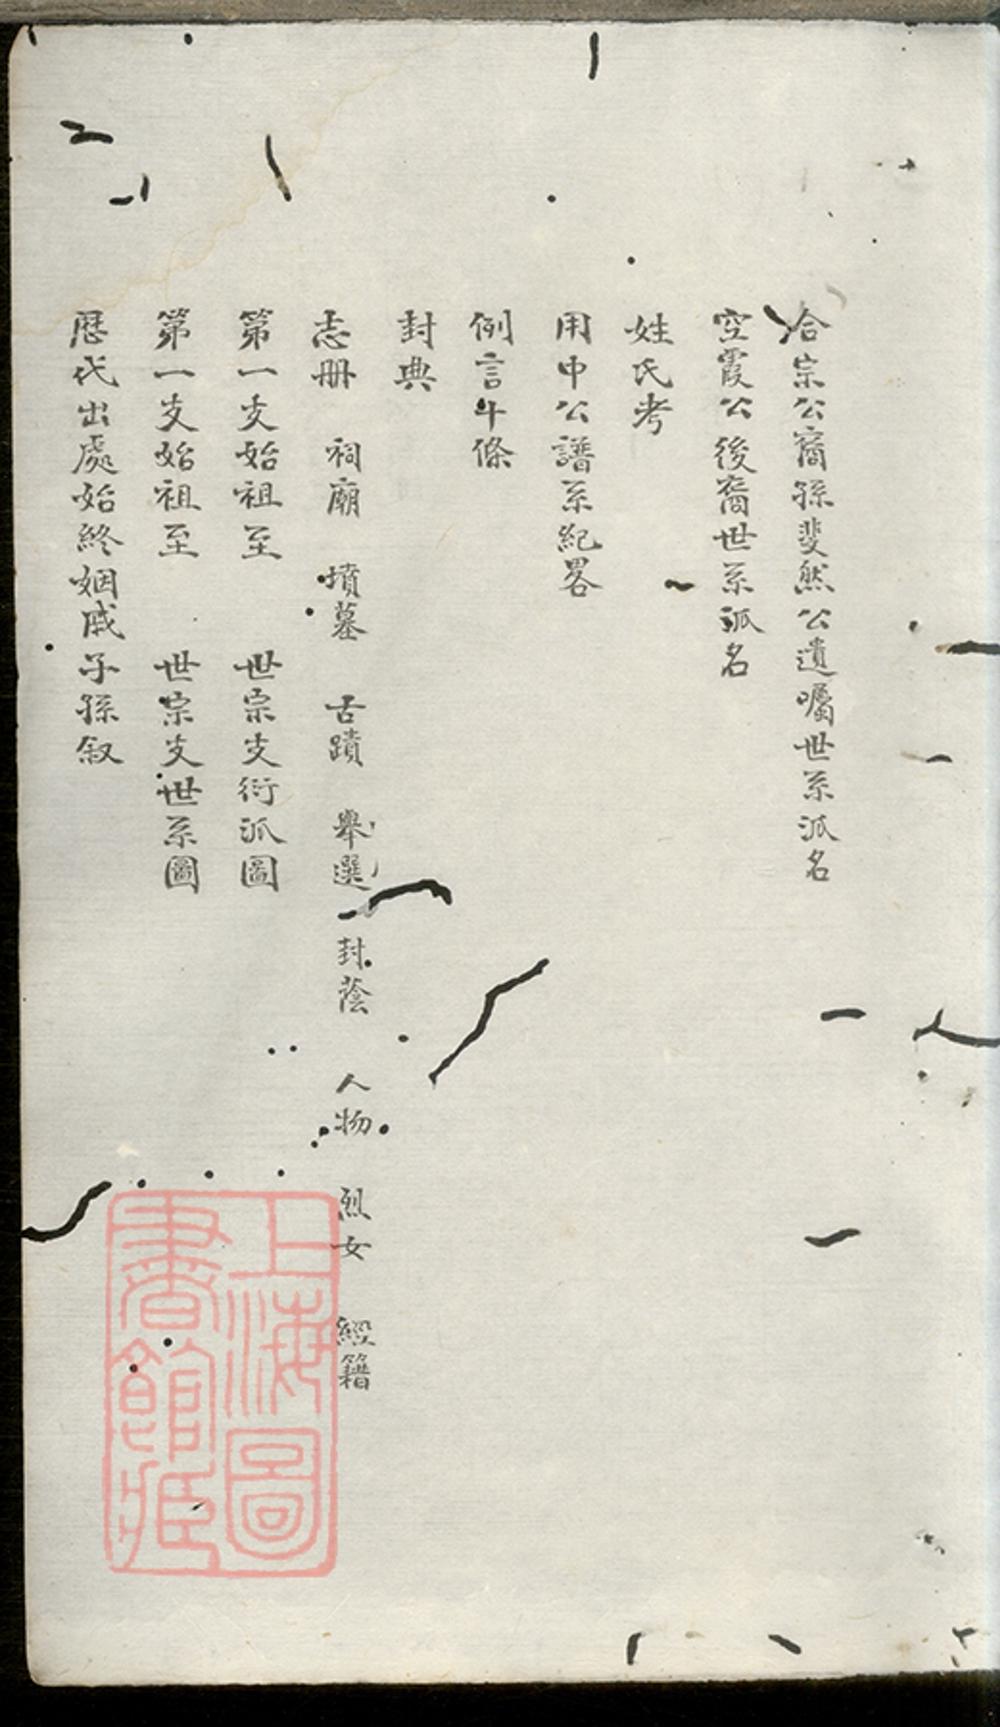 合宗公裔孫斐然公遺囑世系派名
空霞公後裔世系派名
姓氏考
用中公譜系紀畧
例言斗條
封典
志冊 祠廟 墳墓 古蹟 舉選 封蔭 人物 烈女 經籍
第一支始祖至 世宗支衍派圖
第一支始祖至 世宗支世系圖
歷代出處始終姻戚子孫叙
上海圖書館藏